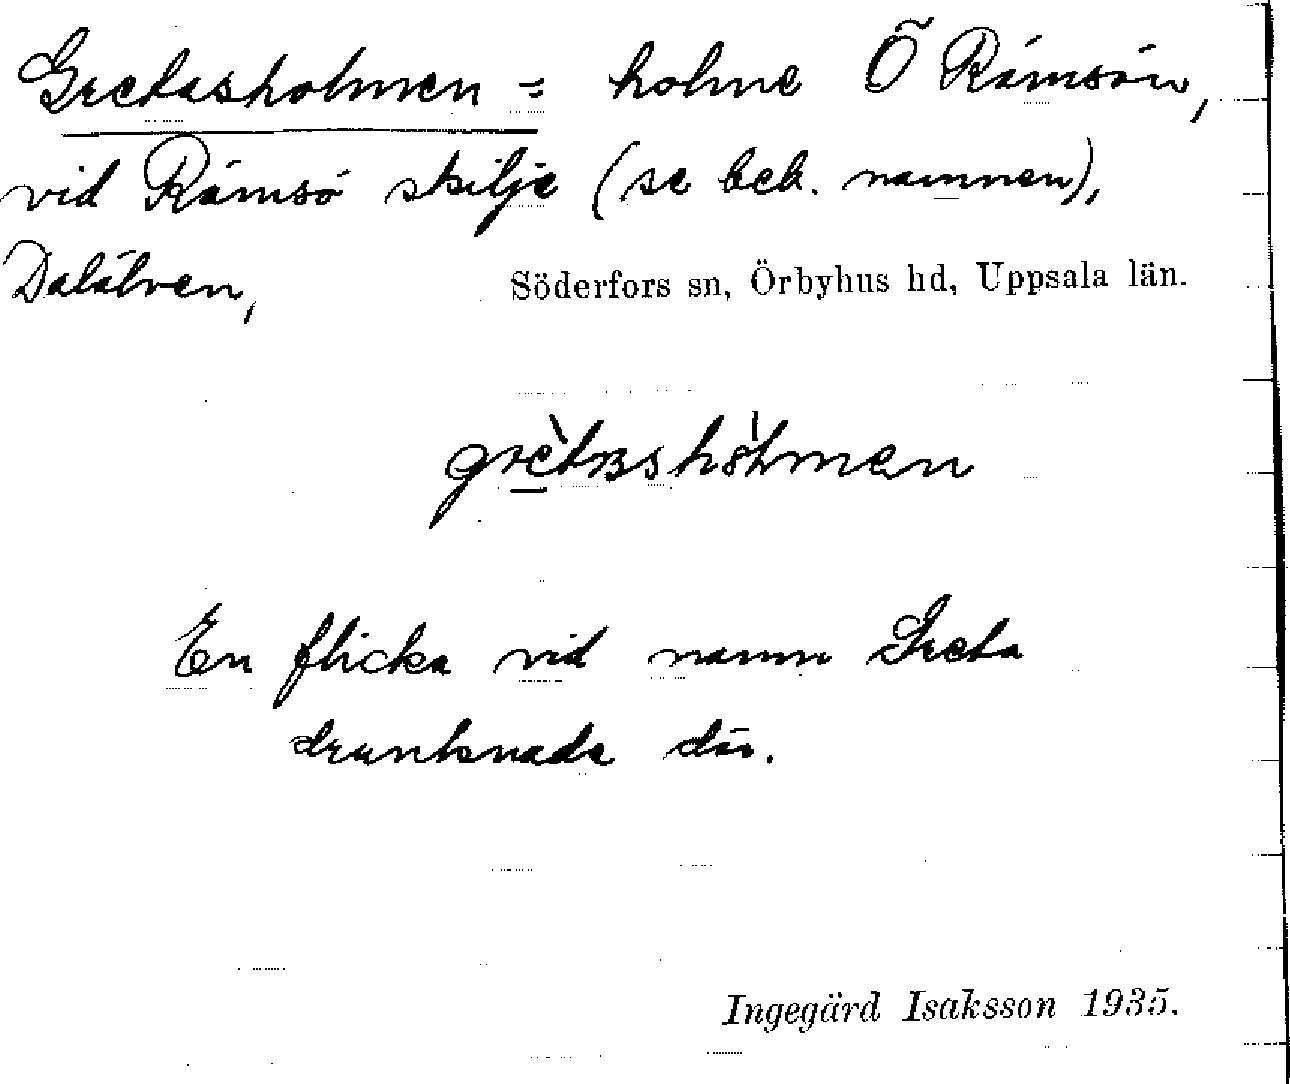 Gretasholmen = holme Ö Rämsön,
vid Rämsö skilje (se beb. namnen),
Dalälven, Söderfors sn, Örbyhus hd, Uppsala län.
En flicka vid namn Greta
drunknade där.
Ingegärd Isaksson 1935.